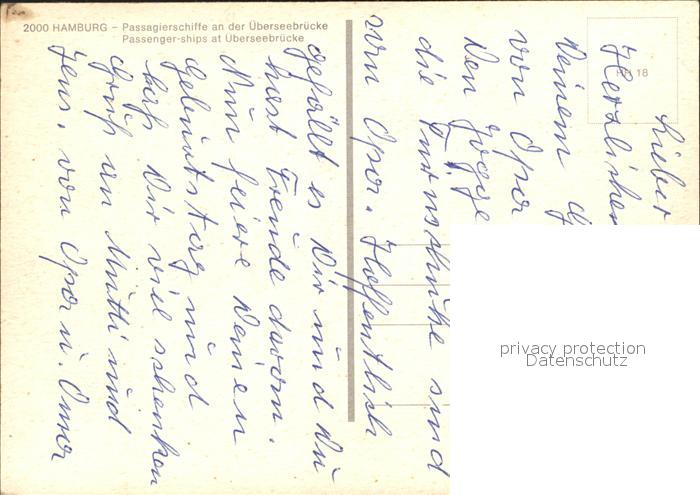 2000 HAMBURG – Passagierschiffe an der Überseebrücke
Passenger-ships at Überseebrücke
HH 18
Lieber
Herzlichen
Deinem G
von Opa
Den Jogge
die Turnschuhe sind
von Opa. Hoffentlich
gefällt es Dir und Du
hast Freude davon.
Nun feiere Deinen
Geburtstag und
laß Dir viel schenken
Gruß an Mutti und
Jens, von Opa u. Oma
privacy protection
Datenschutz